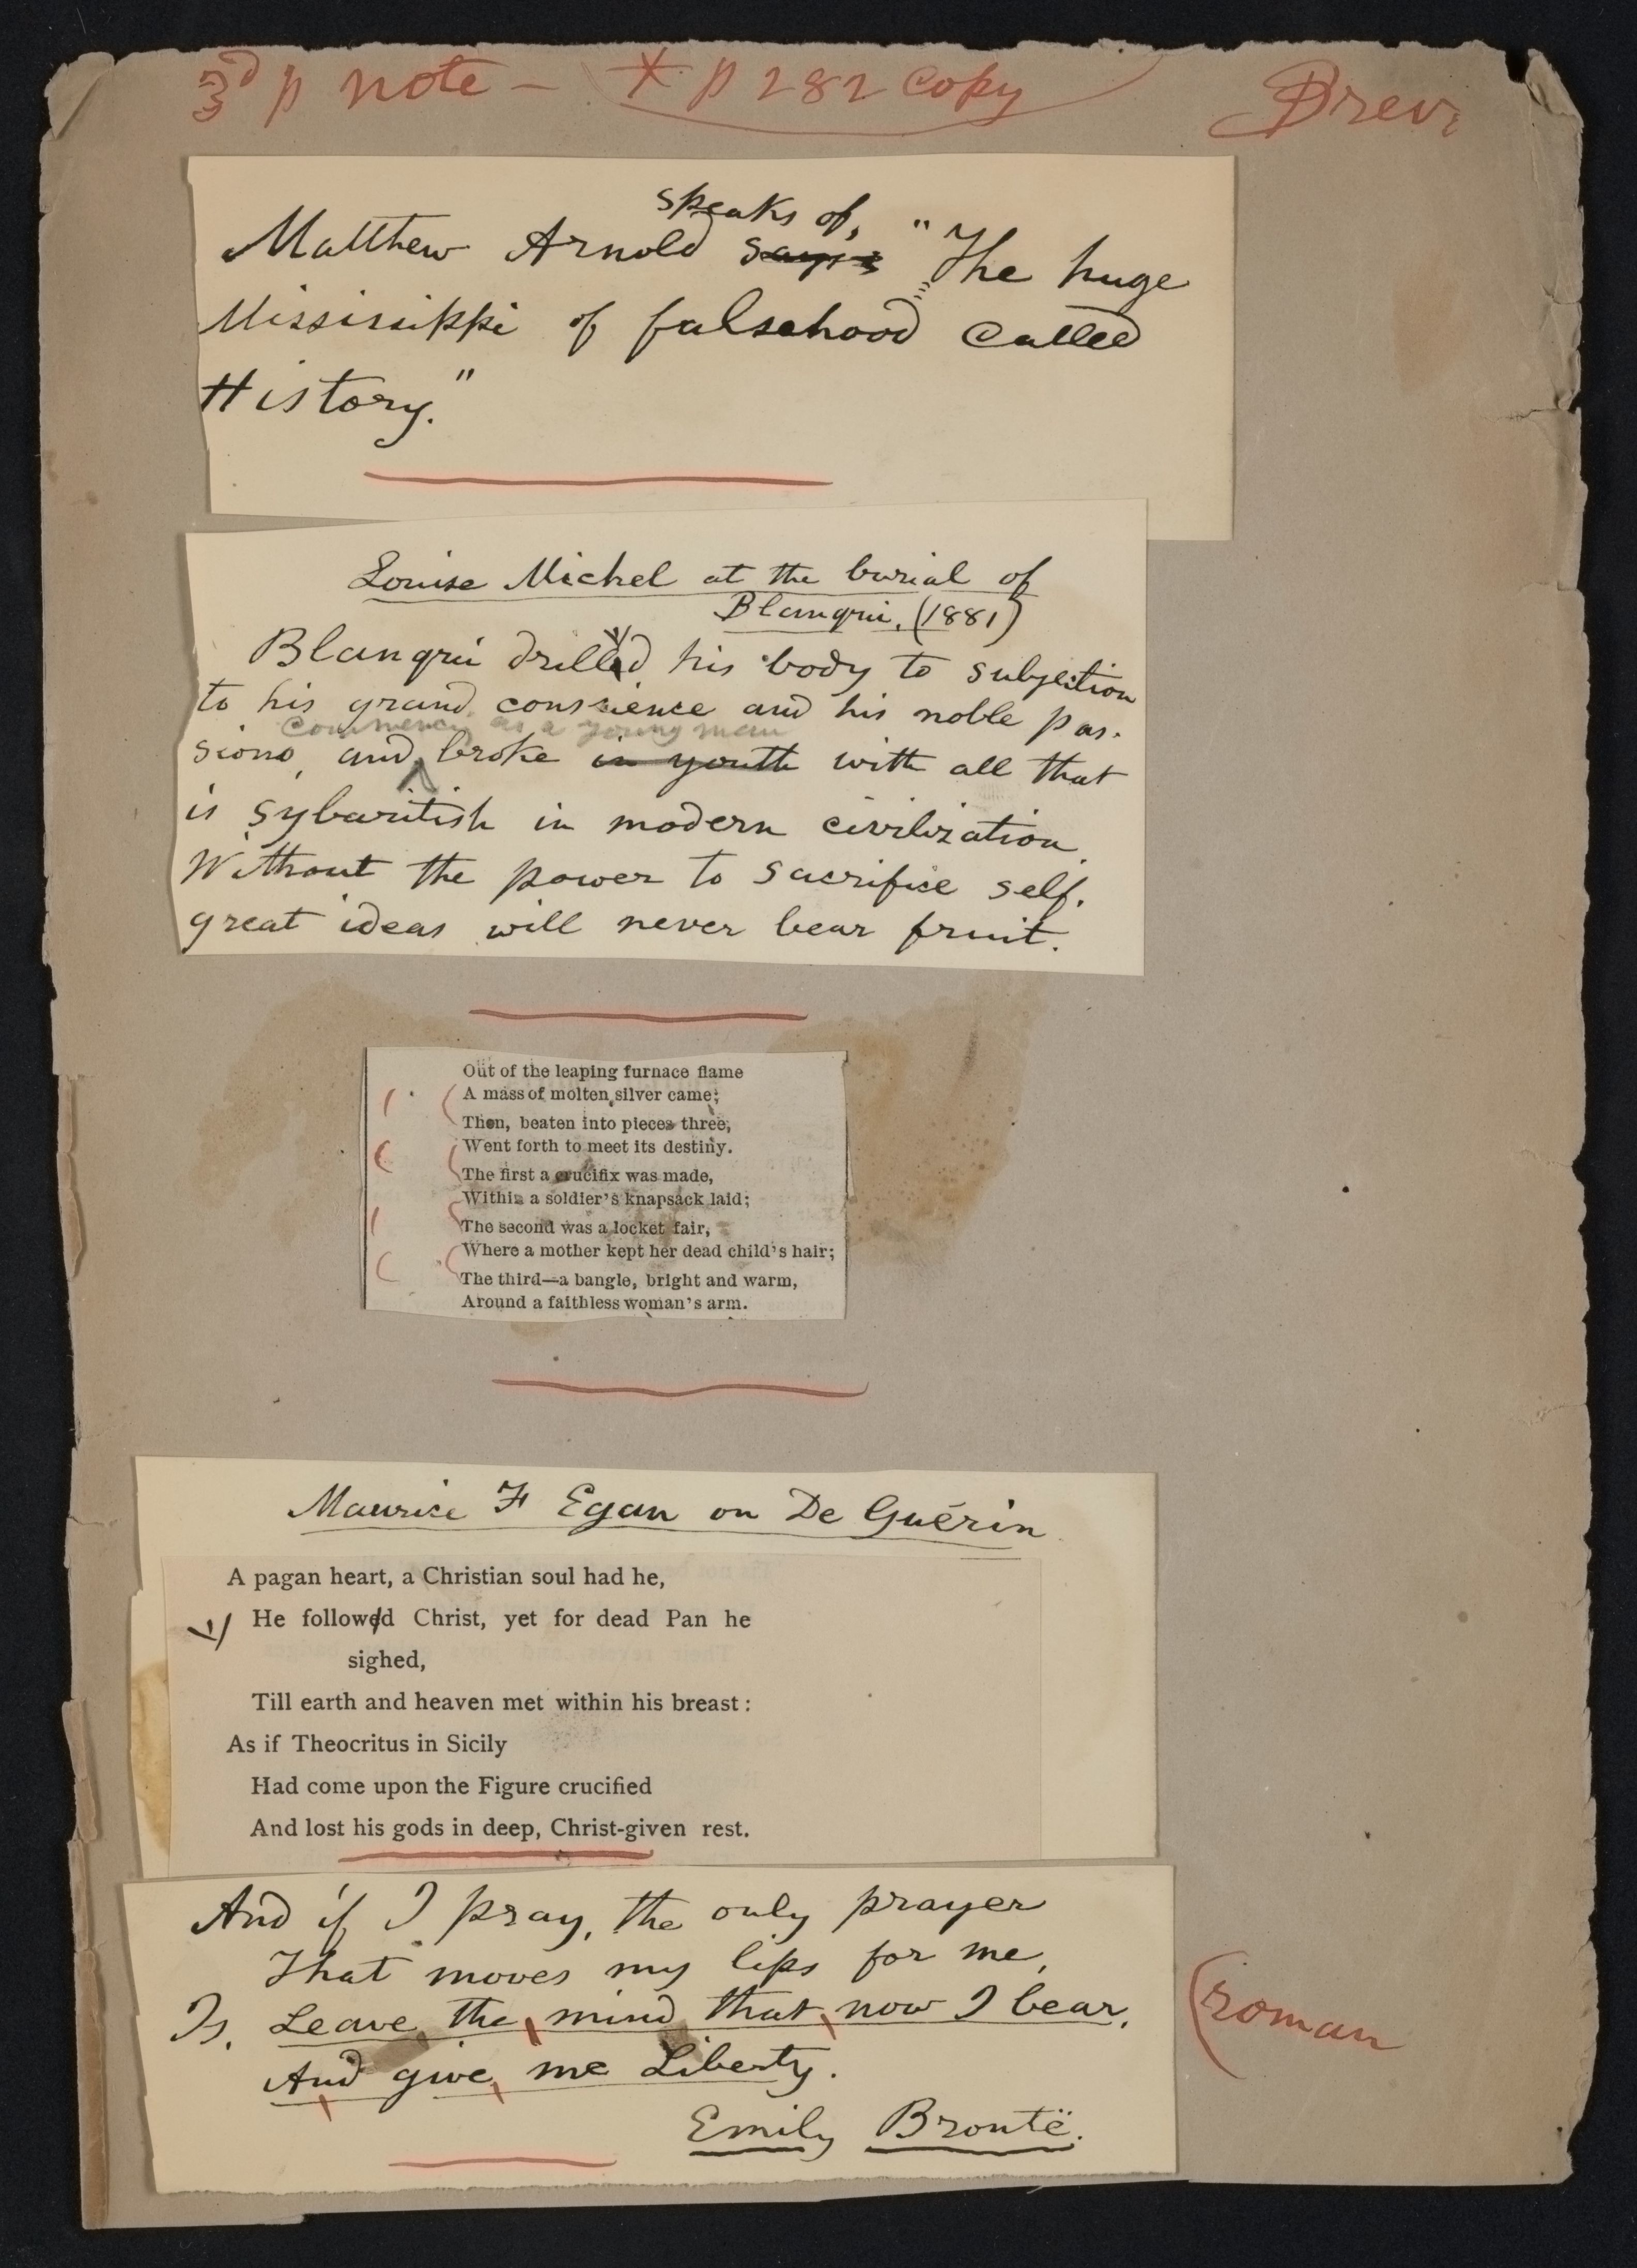 3d p note - * p 282 copy Brev:
speaks of,
Matthew Arnold says "The huge
Mississippi of falsehood called
History."
Louise Michel at the burial of
Blanqui. (1881)
Blanqui drilled his body to subjection
to his grand conscience and his noble pas-
commencing as a young man
sions, and broke in youth with all that
is sybaritish in modern civilization.
Without the power to sacrifice self,
great ideas will never bear fruit.
Out of the leaping furnace flame
A mass of molten silver came;
Then, beaten into pieces three,
Went forth to meet its destiny.
The first a crucifix was made,
Within a soldier's knapsack laid;
The second was a locket fair,
Where a mother kept her dead child's hair;
The third—a bangle, bright and warm,
Around a faithless woman's arm.
Maurice F Egan on De Guérin
A pagan heart, a Christian soul had he,
He followed Christ, yet for dead Pan he
sighed,
Till earth and heaven met within his breast:
As if Theocritus in Sicily
Had come upon the Figure crucified
And lost his gods in deep, Christ-given rest.
And if I pray, the only prayer
That moves my lips for me,
Is, Leave the mind that now I bear,
And give me Liberty.
(roman
Emily Brontë.